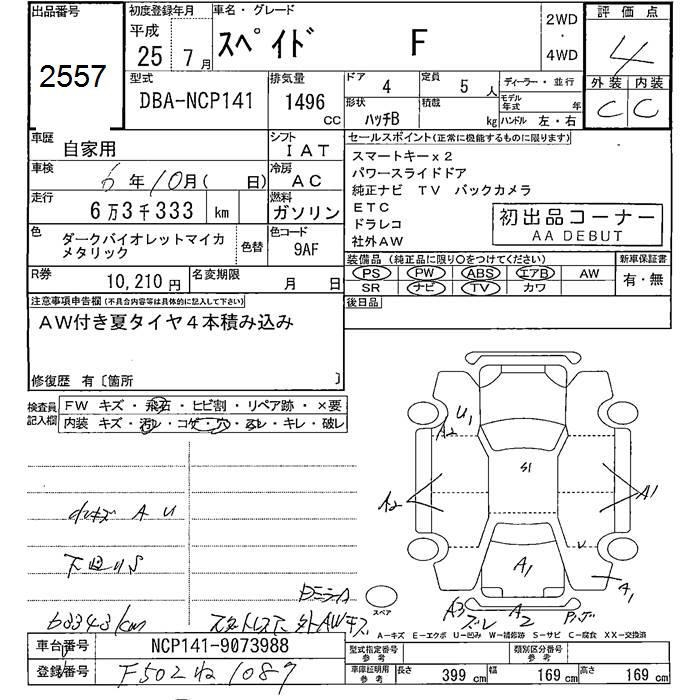 出品番号
2557
初度登録年月
平成
25 年 7 月
車名・グレード
スペイド F
2WD
・
4WD
評価点
4
外装 内装
C C
型式
DBA-NCP141
排気量
1496
cc
ドア
4
定員
5 人
形状
ハッチB
積載
kg
ディーラー・並行
モデル年式 年
ハンドル 左・右
車歴
自家用
シフト
IAT
車検
6 年 10 月( 日)
冷房
AC
走行
6万3千333 km
燃料
ガソリン
色
ダークバイオレットマイカ
メタリック
色替
色コード
9AF
R券
10,210 円
名変期限
月 日
セールスポイント(正常に機能するものに限ります)
スマートキーx2
パワースライドドア
純正ナビ TV バックカメラ
ETC
ドラレコ
社外AW
初出品コーナー
AA DEBUT
装備品(純正品に限り〇をつけてください)
PS PW ABS エアB AW
SR ナビ TV カワ
新車保証書
有・無
後日品
注意事項申告欄(不具合内容等は具体的に記入して下さい)
AW付き夏タイヤ4本積み込み
修復歴 有〔箇所 〕
検査員
記入欄
FW キズ・飛石・ヒビ割・リペア跡・×要
内装 キズ・汚レ・コゲ・穴・スレ・キレ・破レ
小キズ A U
下回りS
63343km
U1
A2
S1
A2
A1
A1
A1
A3
A2
スペア
A-キズ E-エクボ U-凹み W-補修跡 S-サビ C-腐食 XX-交換済
車台番号
NCP141-9073988
登録番号
F502ね1087
型式指定番号
参考
類別区分番号
参考
車庫証明用
参考
長さ 399 cm 幅 169 cm 高さ 169 cm